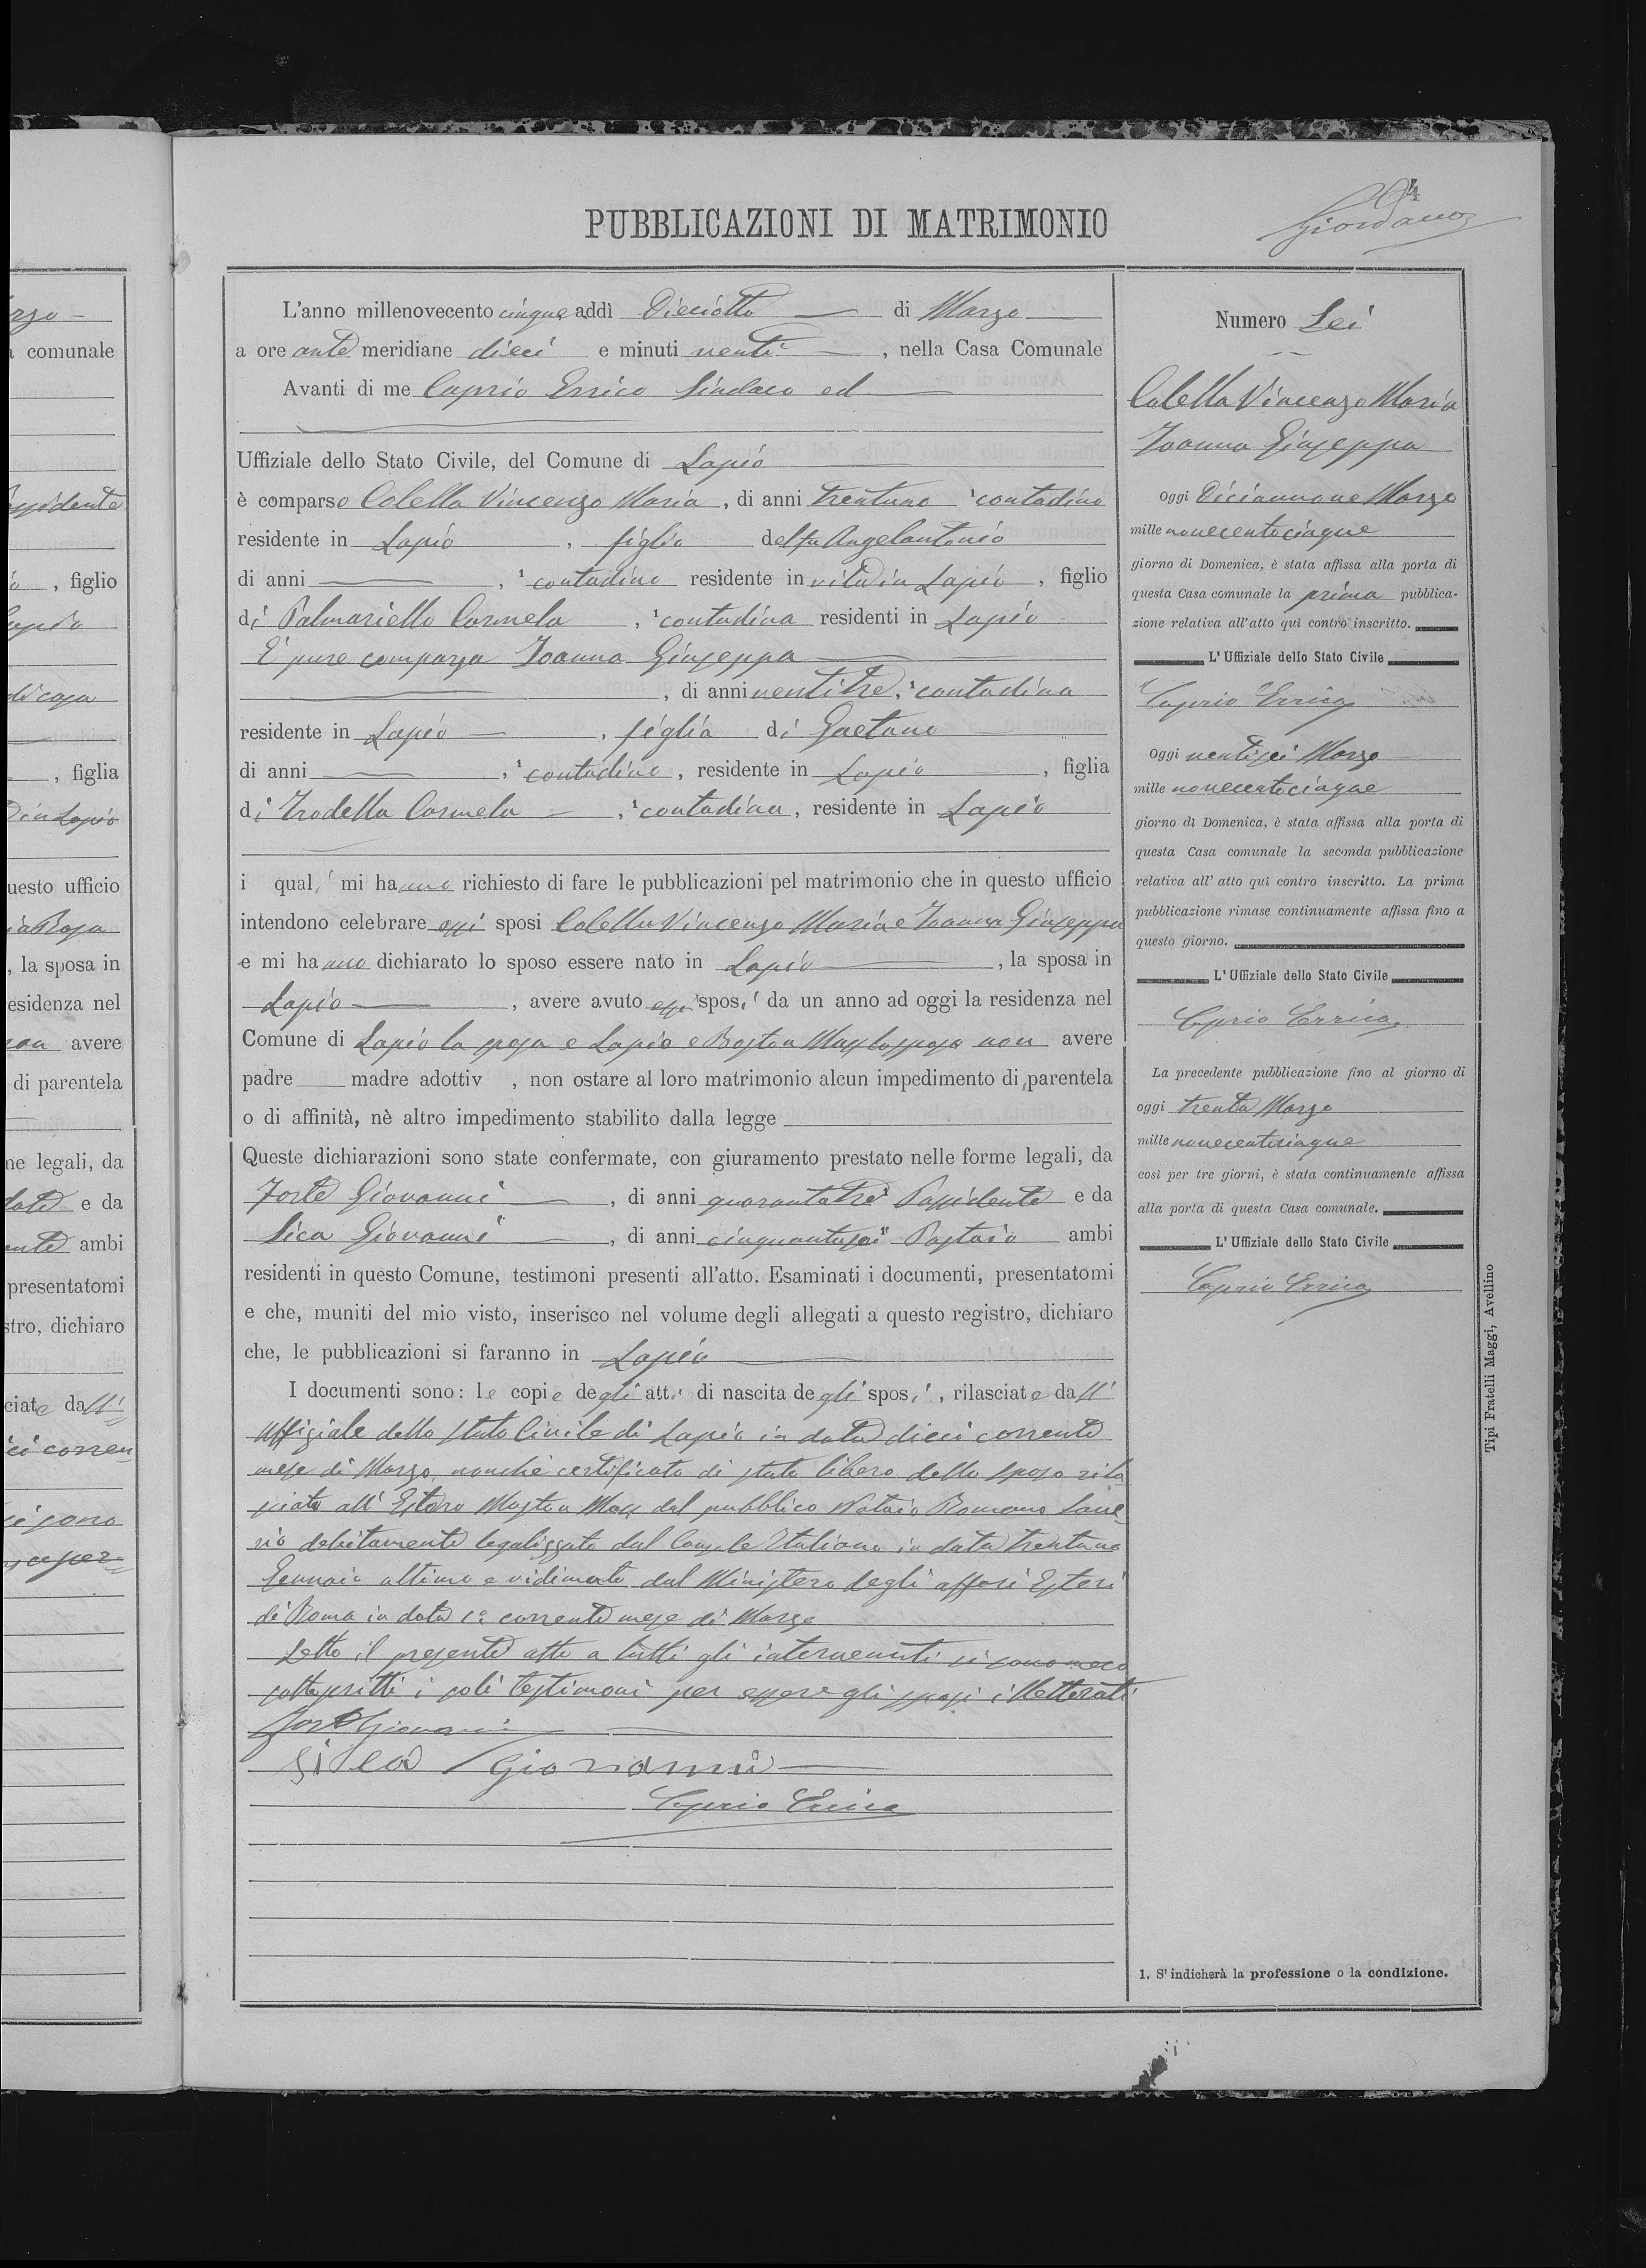 rzo
comunale
, figlio
, figlia
uesto ufficio
, la sposa in
esidenza nel
avere
di parentela
ne legali, da
e da
ambi
presentatomi
stro, dichiaro
ciate dall'
4
Giordano
PUBBLICAZIONI DI MATRIMONIO
L'anno millenovecento cinque addì Dieciotto di Marzo
a ore ante meridiane dieci e minuti venti, nella Casa Comunale
Avanti di me Caprio Errico Sindaco ed
Uffiziale dello Stato Civile, del Comune di Lapio
è comparso Colella Vincenzo Maria, di anni trentuno 1 contadino
residente in Lapio, figlio del fu Angelantonio
di anni , 1 contadino residente in vita in Lapio, figlio
di Palmariello Carmela, 1 contadina residenti in Lapio
È pure comparsa Ioanna Giuseppa
, di anni ventitre, 1 contadina
residente in Lapio, figlia di Gaetano
di anni , 1 contadino, residente in Lapio, figlia
di Trodella Carmela, 1 contadina, residente in Lapio
i quali mi hanno richiesto di fare le pubblicazioni pel matrimonio che in questo ufficio
intendono celebrare essi sposi Colella Vincenzo Maria e Ioanna Giuseppa
e mi hanno dichiarato lo sposo essere nato in Lapio, la sposa in
Lapio, avere avuto essi sposi da un anno ad oggi la residenza nel
Comune di Lapio la sposa e Lapio e Boston Mass lo sposo non avere
padre madre adottiv , non ostare al loro matrimonio alcun impedimento di parentela
o di affinità, nè altro impedimento stabilito dalla legge
Queste dichiarazioni sono state confermate, con giuramento prestato nelle forme legali, da
Forte Giovanni, di anni quarantatre Possidente e da
Sica Giovanni, di anni cinquantasei Pastaio ambi
residenti in questo Comune, testimoni presenti all'atto. Esaminati i documenti, presentatomi
e che, muniti del mio visto, inserisco nel volume degli allegati a questo registro, dichiaro
che, le pubblicazioni si faranno in Lapio
I documenti sono: le copie degli atti di nascita degli sposi, rilasciate dall'
Uffiziale dello Stato Civile di Lapio in data dieci corrente
mese di Marzo, nonchè certificato di stato libero dello sposo rila
sciato all'Estero Boston Mass dal pubblico Notaio Romano Save
rio debitamente legalizzato dal Console Italiano in data trentuno
Gennaio ultimo e vidimato dal Ministero degli affari Esteri
di Roma in data 1° corrente mese di Marzo
Letto il presente atto a tutti gli intervenuti si sono meco
sottoscritti i soli testimoni per essere gli sposi illetterati
Forte Giovanni
Sica Giovanni
Caprio Errico
Numero Sei
Colella Vincenzo Maria
Ioanna Giuseppa
oggi Diciannove Marzo
mille novecentocinque
giorno di Domenica, è stata affissa alla porta di
questa Casa comunale la prima pubblica-
zione relativa all'atto quì contro inscritto.
L'Uffiziale dello Stato Civile
Caprio Errico
oggi ventisei Marzo
mille novecentocinque
giorno di Domenica, è stata affissa alla porta di
questa Casa comunale la seconda pubblicazione
relativa all'atto quì contro inscritto. La prima
pubblicazione rimase continuamente affissa fino a
questo giorno.
L'Uffiziale dello Stato Civile
Caprio Errico
La precedente pubblicazione fino al giorno di
oggi trenta Marzo
mille novecentocinque
così per tre giorni, è stata continuamente affissa
alla porta di questa Casa comunale.
L'Uffiziale dello Stato Civile
Caprio Errico
1. S'indicherà la professione o la condizione.
Tipi Fratelli Maggi, Avellino